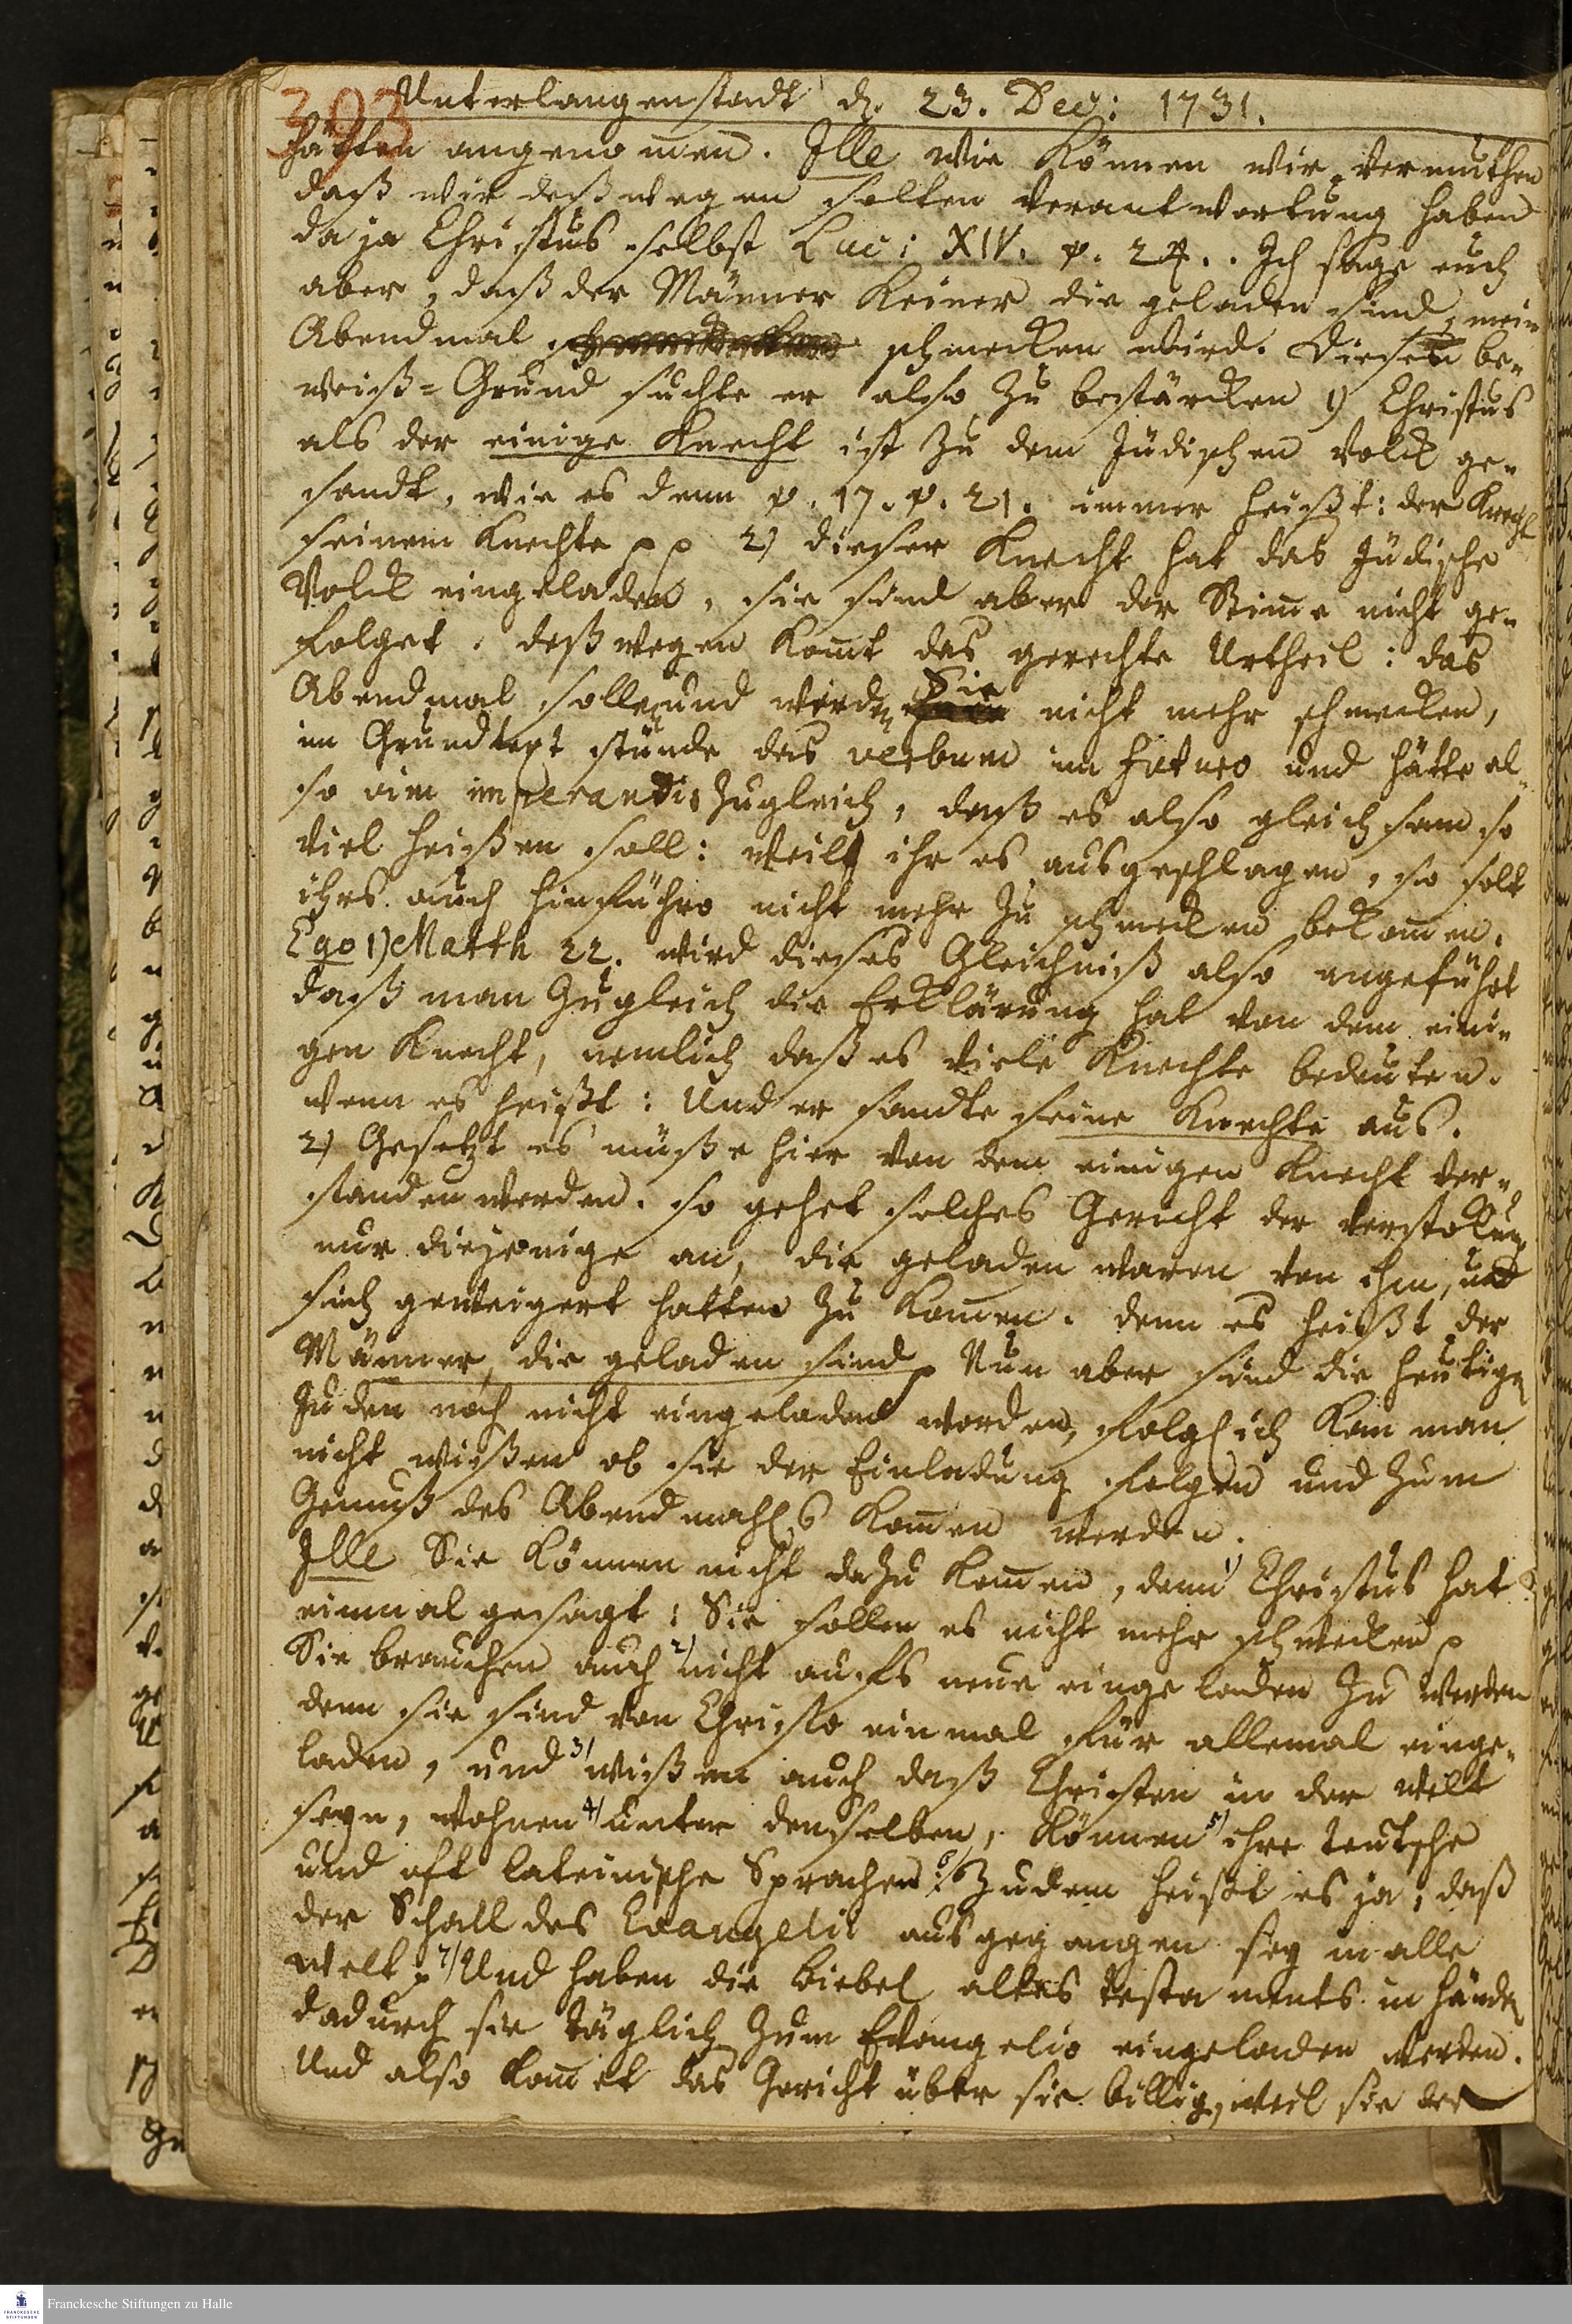 393
Unterlangenstadt d. 23. Dec: 1731.
hätten angenom̄en. Ille wie können wir vermuthen
daß wir deßwegen solten verantwortung haben
da ja Christus selbst Luc: XIV. v. 24.. Ich sage euch
aber, daß der Männer keiner die geladen sind, mein
Abendmal schmecken wird. Diesen be-
weiß-Grund suchte er also zu bestärcken 1) Christus
als der einige Knecht ist zu dem Jüdischen Volck ge-
sandt, wie es denn v. 17. v. 21. immer heißt: der Knecht
seinem Knechte pp 2) dieser Knecht hat das Jüdische
Volck eingeladen, sie sind aber der Stim̄e nicht ge-
folget, deßwegen kom̄t das gerechte Urtheil: das
Abendmal sollen und werden Sie nicht mehr schmecken,
im Grundtext stünde das verbum im futuro und hätte al-
so vim imperantis zugleich, daß es also gleichsam so
viel heißen soll: weil ihr es ausgeschlagen, so solt
ihrs auch hinführo nicht mehr zu schmecken bekom̄en.
Ego 1) Matth 22. wird dieses Gleichniß also angeführt
daß man zugleich die Erklärung hat von dem eini-
gen Knecht, nemlich daß es viele Knechte bedeuten.
wenn es heißt: Und er sandte seine Knechte aus.
2) Gesetzt es müße hier von dem einigen Knecht ver-
standen werden. so gehet solches Gericht der verstockung
nur diejenige an, die geladen waren von ihm, und
sich geweigert hatten zu kom̄en. denn es heißt der
Männer, die geladen sind p Nun aber sind die heutigen
Juden noch nicht eingeladen worden, folglich kan man
nicht wißen ob sie der Einladung folgen und zum
Genuß des Abendmahls kom̄en werden.
Ille Sie können nicht dazu kom̄en, denn 1) Christus hat
einmal gesagt: Sie sollen es nicht mehr schmecken p
Sie brauchen auch 2) nicht aufs neue eingeladen zu werden
denn sie sind von Christo einmal für allemal einge-
laden, und 3) wißen auch daß Christen in der welt
seyn, wohnen 4) unter denselben, können 5) ihre teutsche
und oft lateinische Sprachen: 6) Zudem heißt es ja, daß
der Schall des Evangelii ausgegangen sey in alle
Welt p 7) Und haben die Biebel altes testaments in händen
dadurch sie täglich zum Evangelio eingeladen werden.
Und also kom̄et das Gericht über sie billig, weil sie der
Franckesche Stiftungen zu Halle